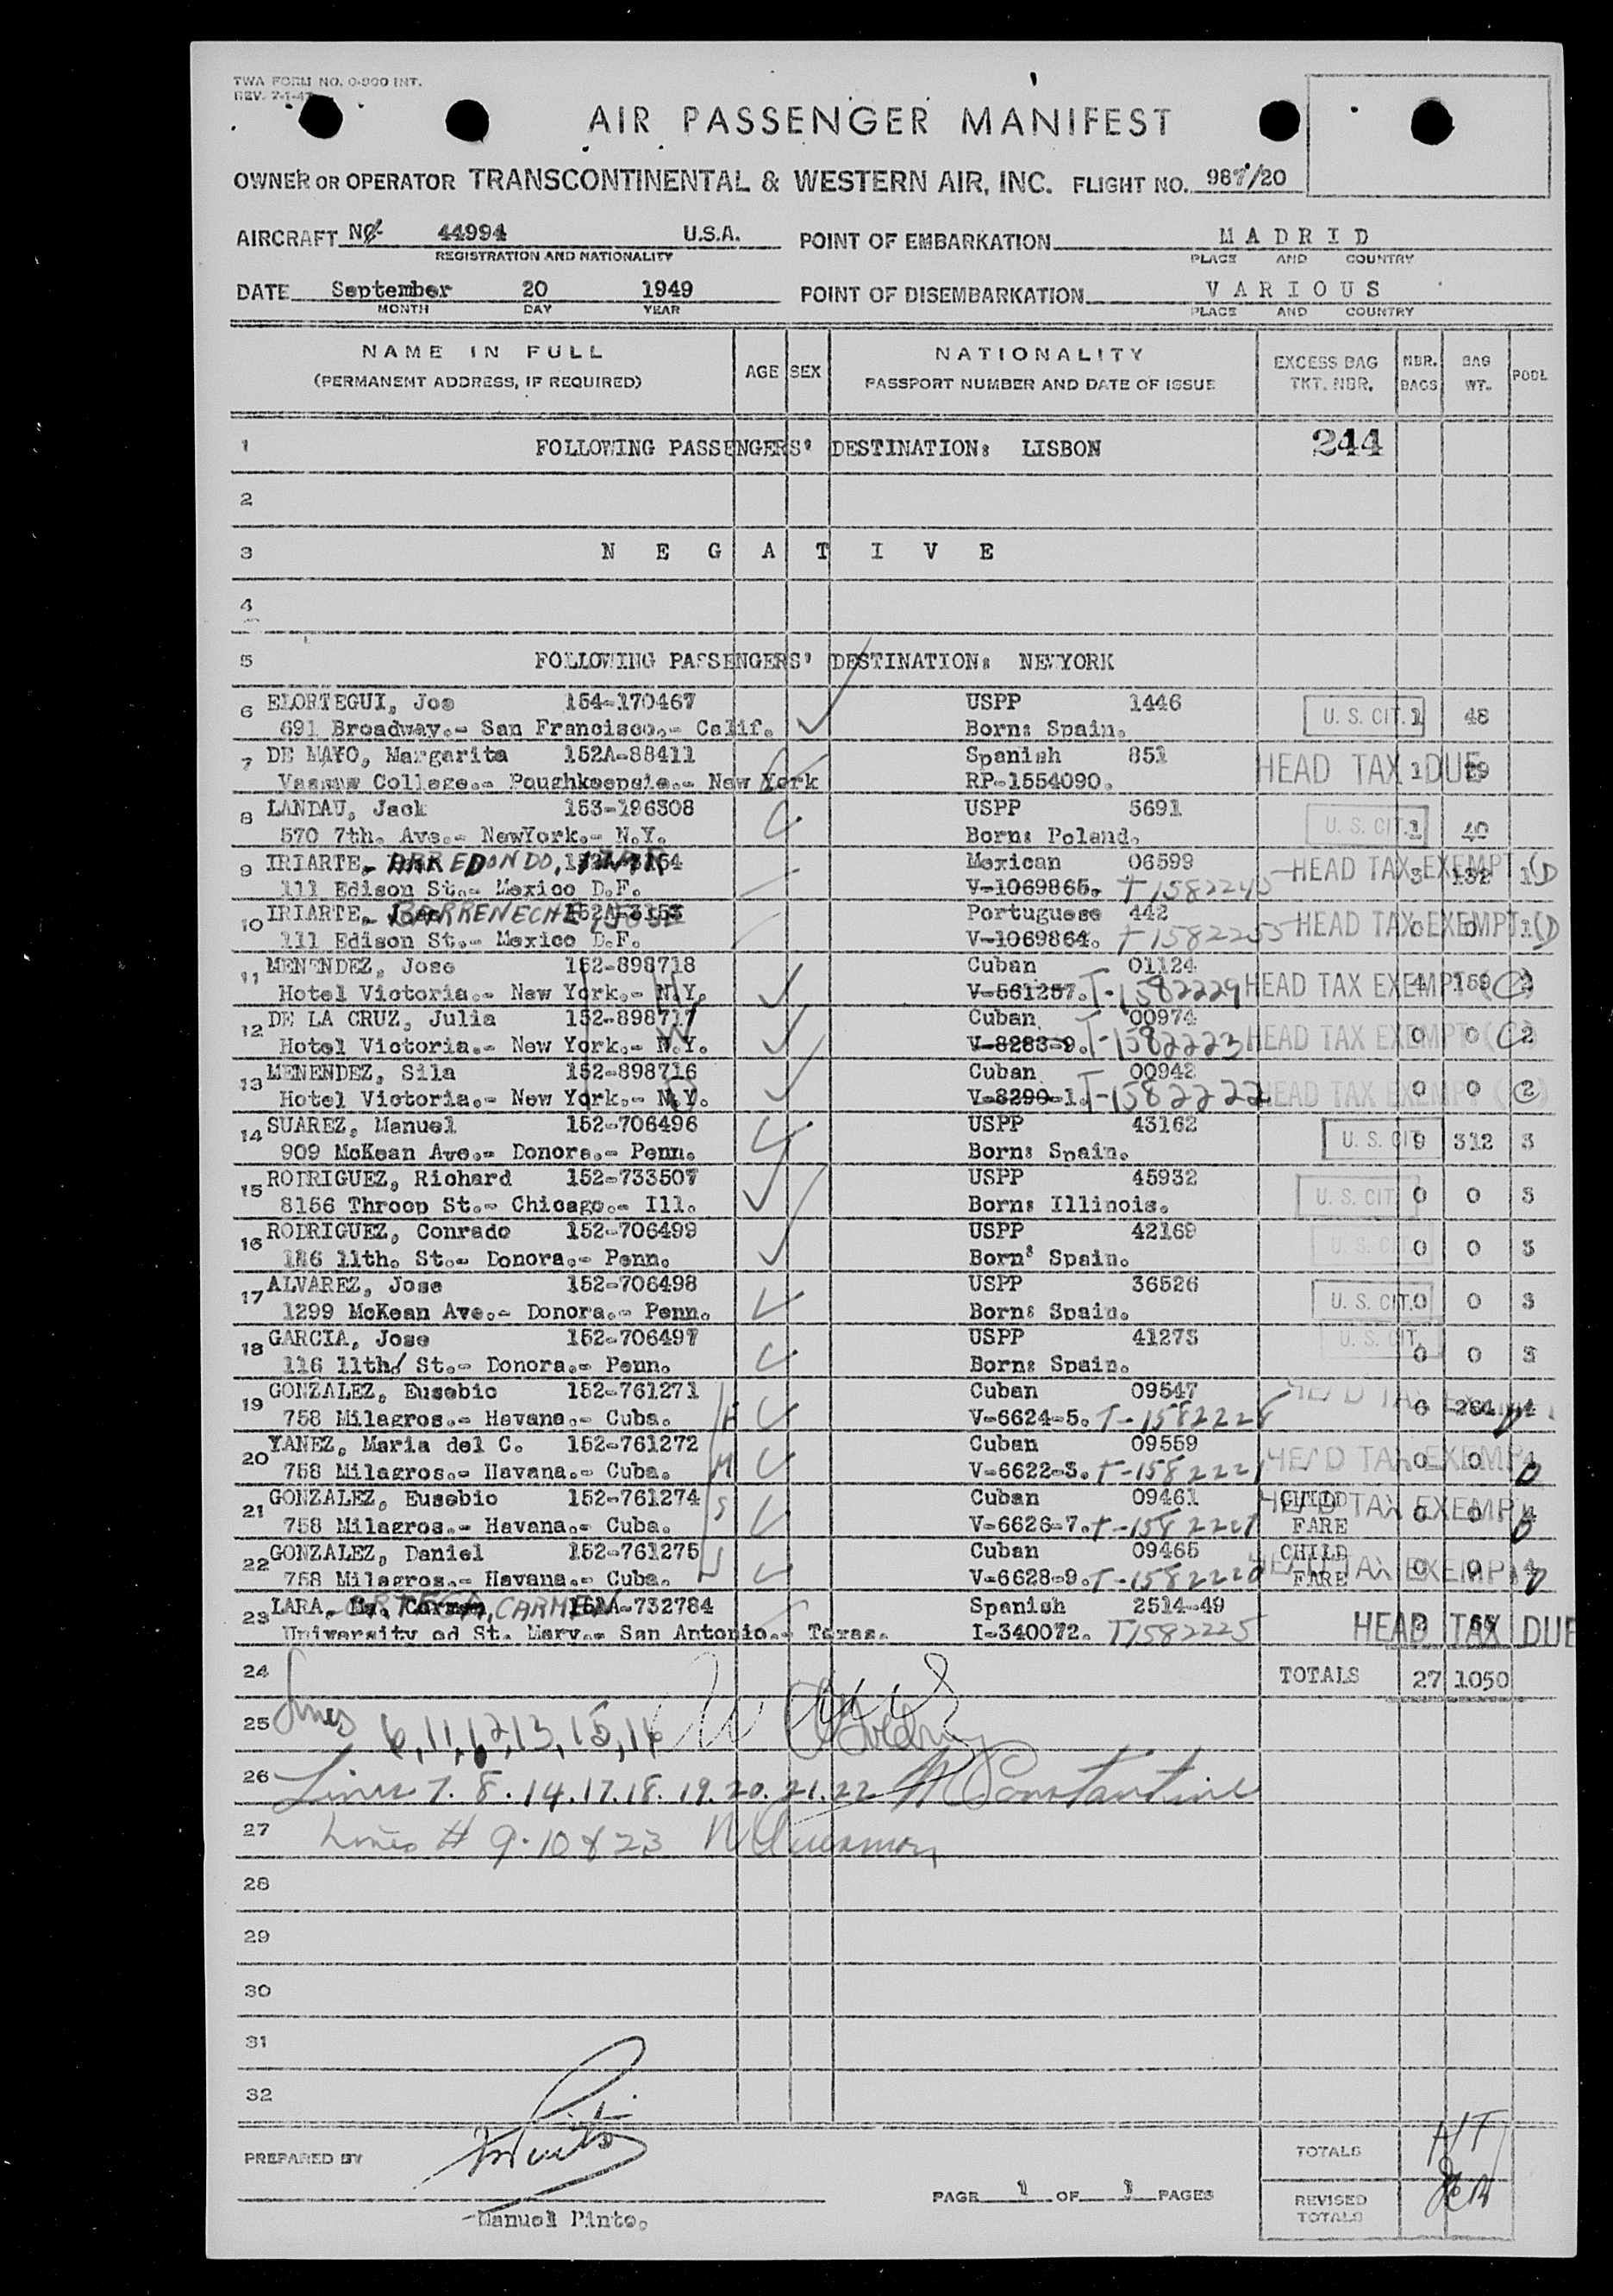 TWA FORM NO. 0-900 INT.
REV. 7-1-47
AIR PASSENGER MANIFEST
OWNER OR OPERATOR TRANSCONTINENTAL & WESTERN AIR, INC. FLIGHT NO. 987/20
AIRCRAFT NC 44994 U.S.A. POINT OF EMBARKATION MADRID
REGISTRATION AND NATIONALITY PLACE AND COUNTRY
DATE September 20 1949 POINT OF DISEMBARKATION VARIOUS
MONTH DAY YEAR PLACE AND COUNTRY
NAME IN FULL
(PERMANENT ADDRESS, IF REQUIRED)
AGE SEX
NATIONALITY
PASSPORT NUMBER AND DATE OF ISSUE
EXCESS BAG
TKT. NBR.
NBR.
BAGS
BAG
WT.
POOL
1 FOLLOWING PASSENGERS' DESTINATION: LISBON 244
2
3 NEGATIVE
4
5 FOLLOWING PASSENGERS' DESTINATION: NEWYORK
6 ELORTEGUI, Jos 154-170467 USPP 1446 U. S. CIT. 1 48
691 Broadway.- San Francisco.- Calif. Born: Spain.
7 DE MAYO, Margarita 152A-88411 Spanish 851 HEAD TAX DUE 1
Vassaw College.- Poughkeepsie.- New York RP-1554090.
8 LANDAU, Jack 153-196308 USPP 5691 U. S. CIT. 1 40
570 7th. Ave.- NewYork.- N.Y. Born: Poland.
9 IRIARTE, - ARREDONDO, Mexican 06599 HEAD TAX EXEMPT (D 3 132 1
111 Edison St.- Mexico D.F. V-1069865. T 1582245
10 IRIARTE, - BARRENECHE, JOSE 152A-3153 Portuguese 442 HEAD TAX EXEMPT (D 0 0 1
111 Edison St.- Mexico D.F. V-1069864. T 1582255
11 MENENDEZ, Jose 152-898718 Cuban 01124 HEAD TAX EXEMPT (C) 4 159 2
Hotel Victoria.- New York.- N.Y. V-561257. T-1582229
12 DE LA CRUZ, Julia 152-898717 Cuban 00974 HEAD TAX EXEMPT (C 0 0 2
Hotel Victoria.- New York.- N.Y. V-8283-9. T-1582223
13 MENENDEZ, Sila 152-898716 Cuban 00942 HEAD TAX EXEMPT 0 0 2
Hotel Victoria.- New York.- N.Y. V-8290-1. T-1582222
14 SUAREZ, Manuel 152-706496 USPP 43162 U. S. CIT 9 312 3
909 McKean Ave.- Donora.- Penn. Born: Spain.
15 RODRIGUEZ, Richard 152-733507 USPP 45932 U. S. CIT 0 0 3
8156 Throop St.- Chicago.- Ill. Born: Illinois.
16 RODRIGUEZ, Conrado 152-706499 USPP 42169 U. S. CIT. 0 0 3
186 11th. St.- Donora.- Penn. Born: Spain.
17 ALVAREZ, Jose 152-706498 USPP 36526 U. S. CIT. 0 0 3
1299 McKean Ave.- Donora.- Penn. Born: Spain.
18 GARCIA, Jose 152-706497 USPP 41273 U. S. CIT. 0 0 3
116 11th. St.- Donora.- Penn. Born: Spain.
19 GONZALEZ, Eusebio 152-761271 Cuban 09547 HEAD TAX EXEMPT 6 264 4
758 Milagros.- Havana.- Cuba. H V-6624-5. T-1582228
20 YANEZ, Maria del C. 152-761272 Cuban 09559 HEAD TAX EXEMPT 0 0 4
758 Milagros.- Havana.- Cuba. V-6622-3. T-1582221
21 GONZALEZ, Eusebio 152-761274 Cuban 09461 CHILD HEAD TAX EXEMPT 0 0 4
758 Milagros.- Havana.- Cuba. S V-6626-7. FARE
22 GONZALEZ, Daniel 152-761275 Cuban 09465 CHILD HEAD TAX EXEMPT 0 0 4
758 Milagros.- Havana.- Cuba. S V-6628-9. T-1582220 FARE
23 LARA, - ORTEGA, CARMEN 152A-732784 Spanish 2514-49 HEAD TAX DUE
University od St. Mary.- San Antonio.- Texas. I-340072. T1582225
24 TOTALS 27 1050
25 Lines 6, 11, 12, 13, 15, 16
26 Lines 7. 8. 14. 17. 18. 19. 20. 21. 22 Constantine
27 Lines # 9. 10 & 23
28
29
30
31
32
PREPARED BY
Manuel Pinto.
PAGE 1 OF 1 PAGES
TOTALS
HT
REVISED
TOTALS